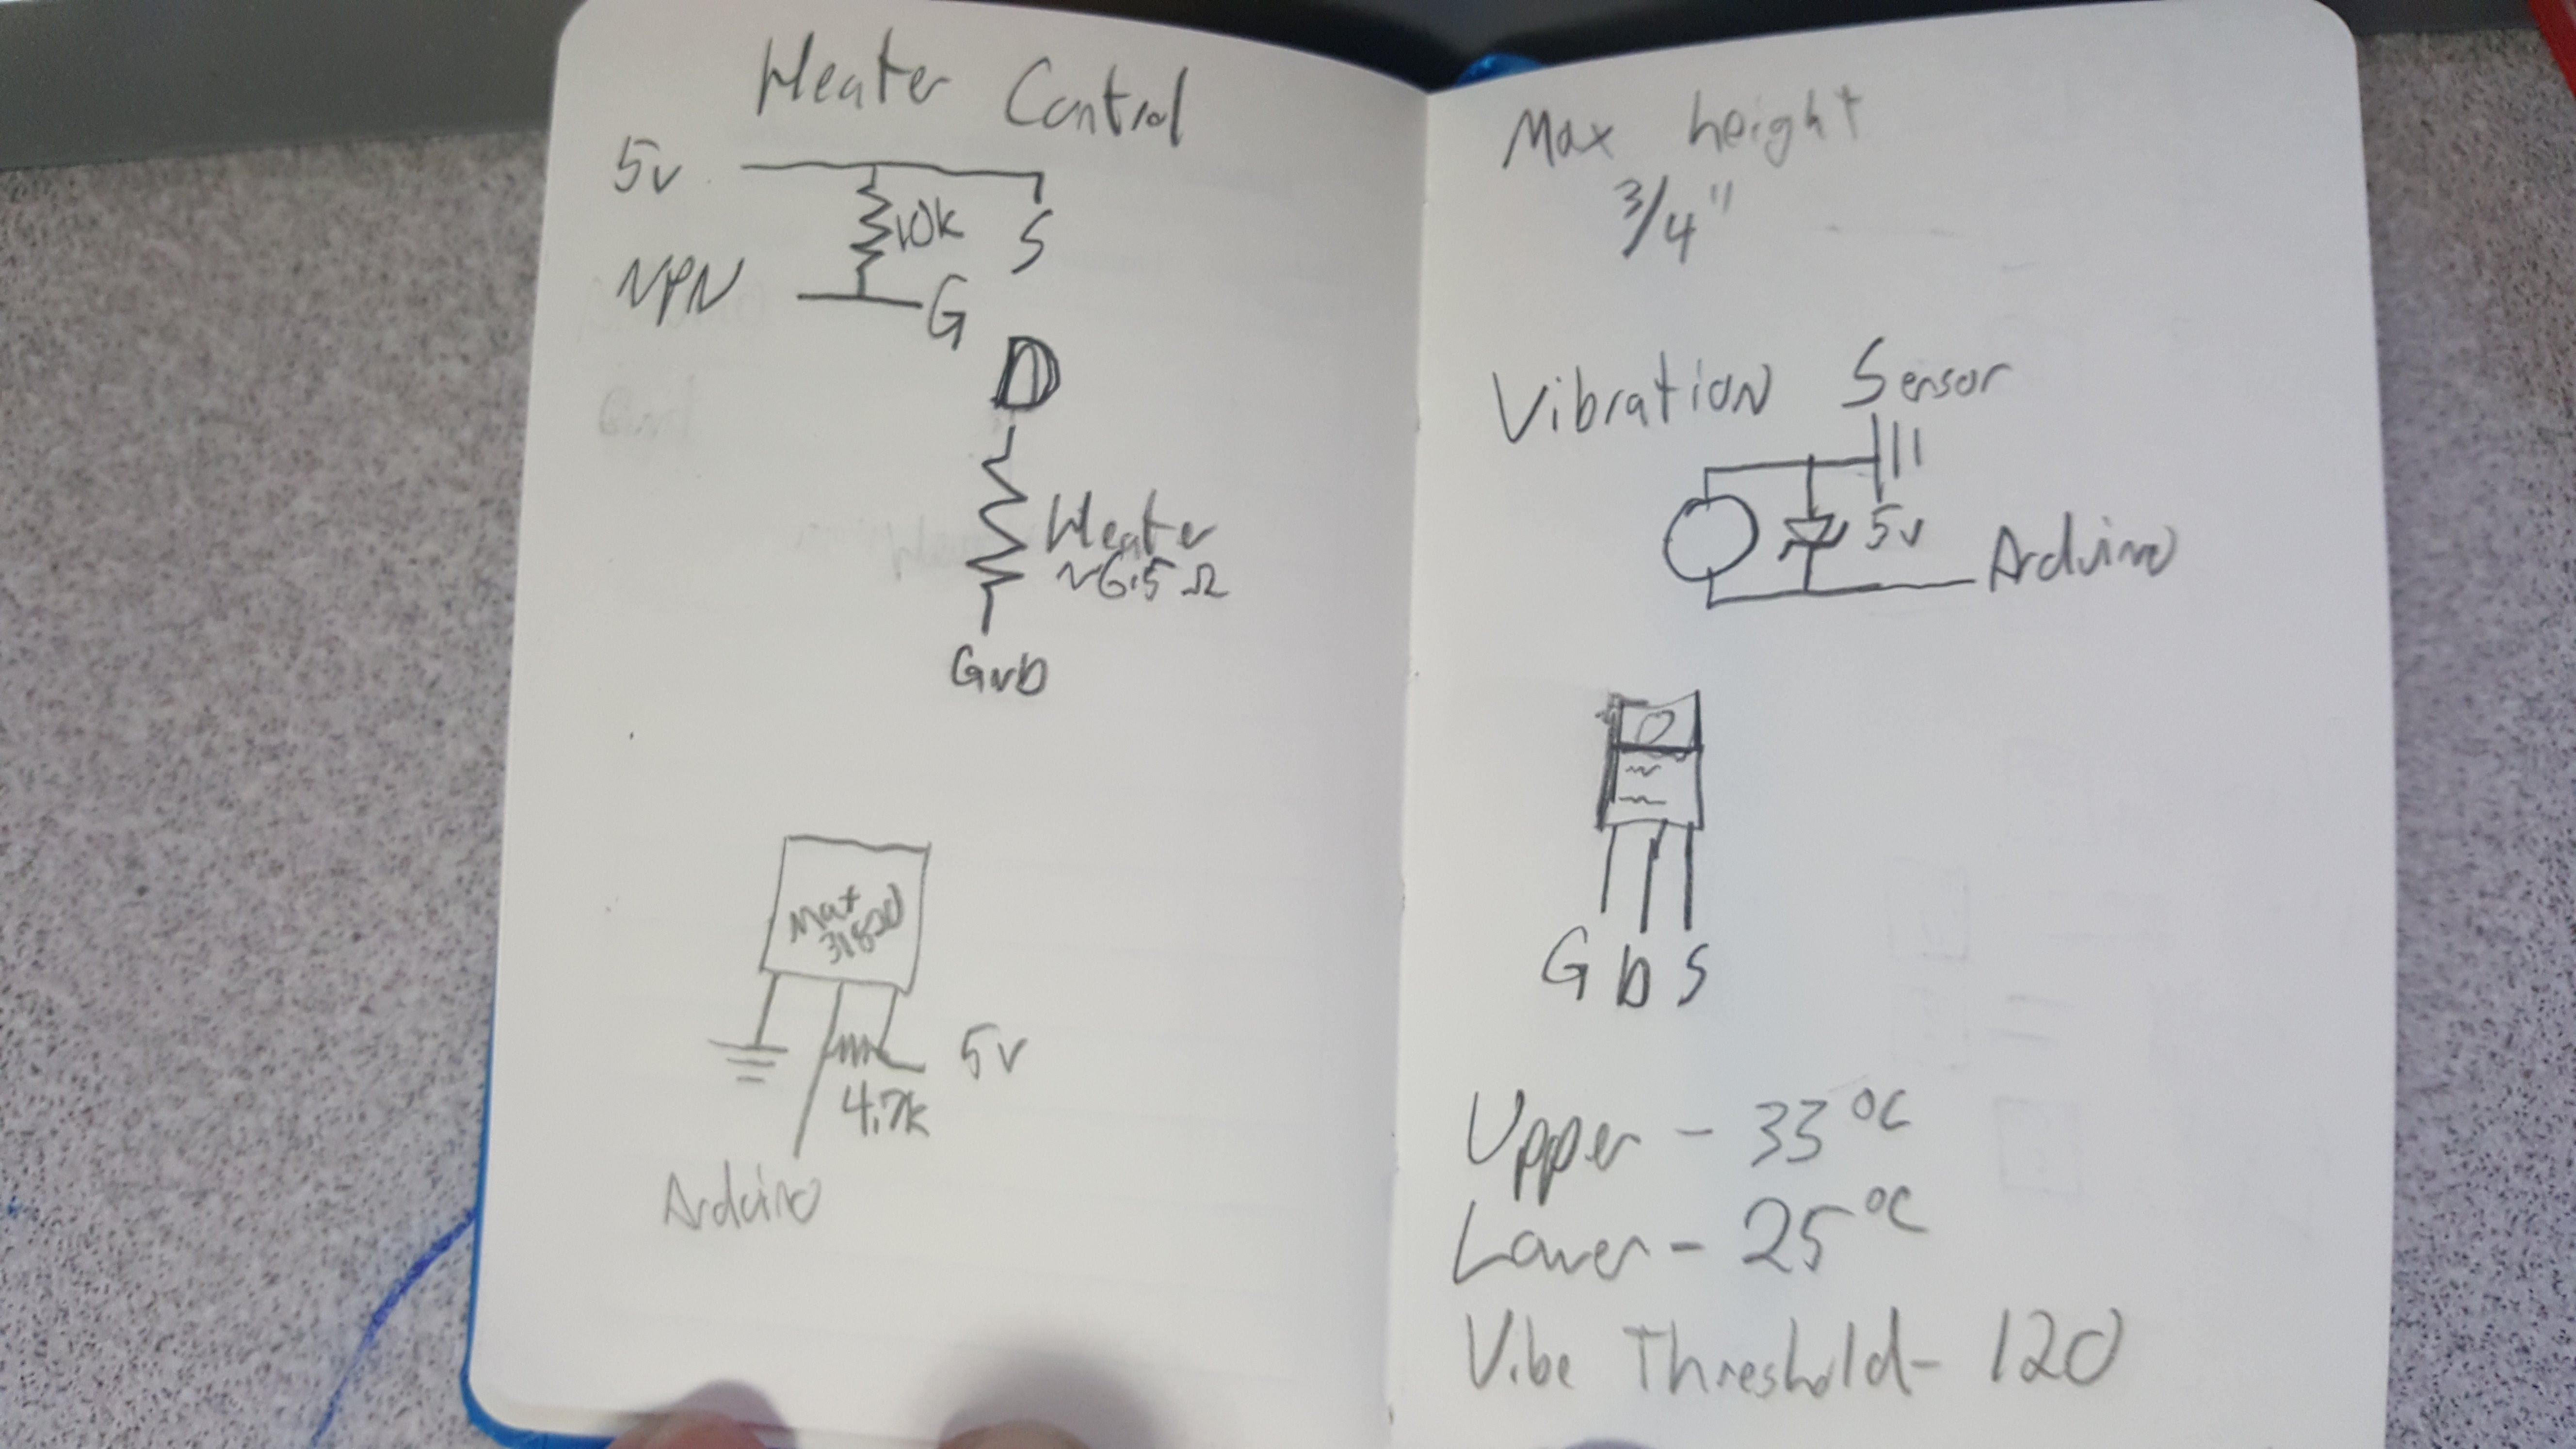 Heater Control
5v
10k
S
NPN
G
D
Heater
~6.5 Ω
GND
5v
4.7k
Arduino
Max height
3/4"
Vibration Sensor
5v
Arduino
G D S
Upper - 35°C
Lower - 25°C
Vibe Threshold - 120